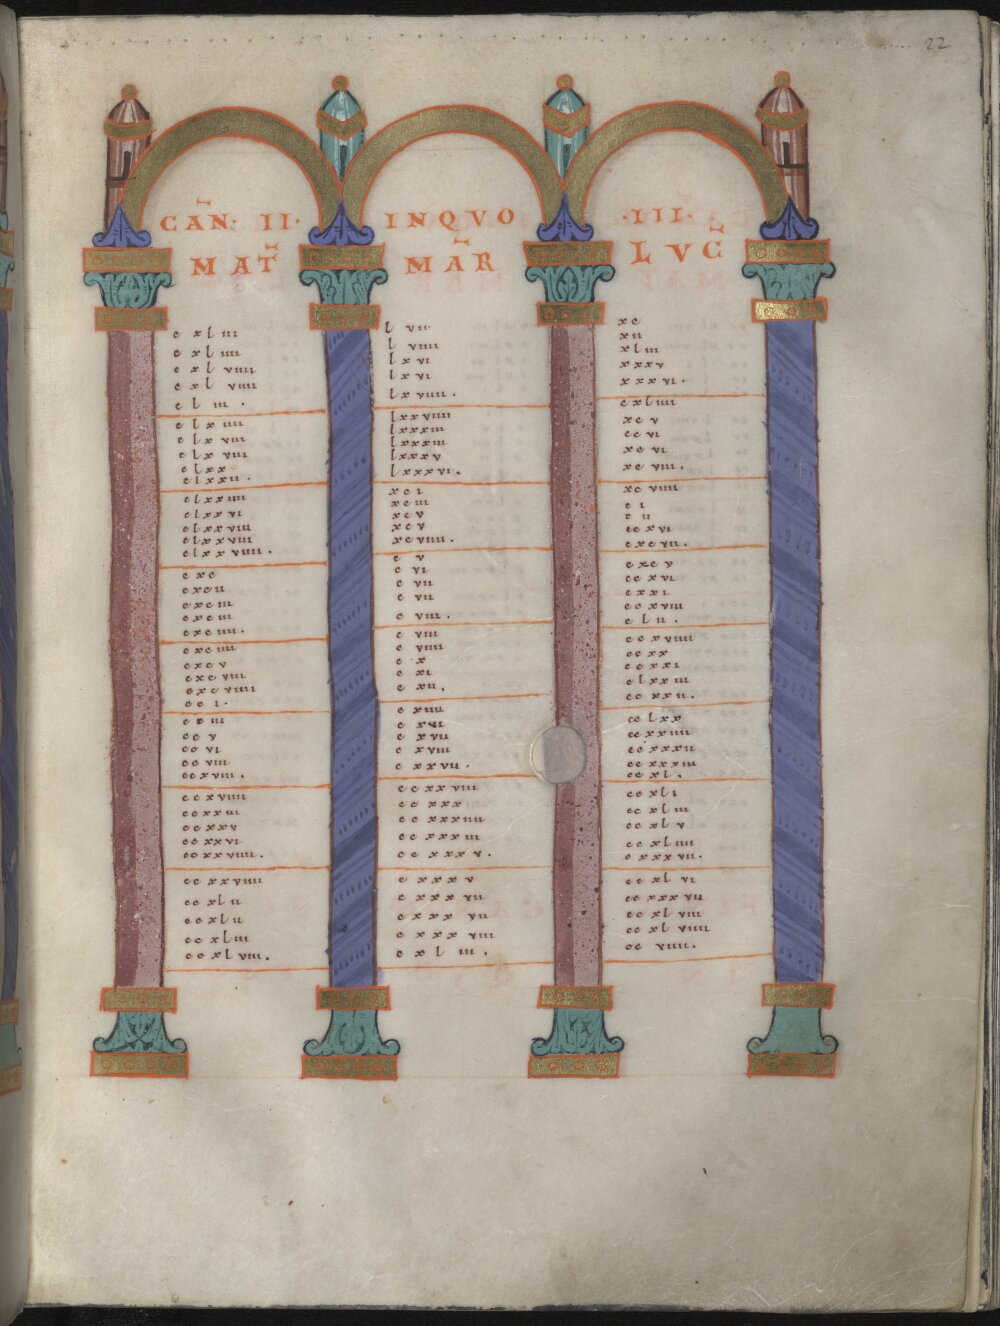 22
CAN· II· INQVO ·III·
MAT MAR LVC
c xl iii
c xl iiii
c xl viiii
c xl viiii
cl iii .
clx iiii
clx viii
clx viii
clxx
clxxii .
clxxiiii
clxxvi
clxxviii
clxxviii
clxxviiii .
cxc
cxcii
cxciii
cxciii
cxciiii.
cxciiii
cxcv
cxcviii
cxcviiii
cci .
cciii
ccv
ccvi
ccviii
ccxviii.
ccxviiii
ccxxiii
ccxxv
ccxxvi
ccxxviiii.
ccxxviiii
ccxlii
ccxlii
ccxliii
ccxlviii.
l vii
l viiii
lxvi
lxvi
lxviiii .
lxxviiii
lxxxiii
lxxxiii
lxxxv
lxxxvi .
xci
xciii
xcv
xcv
xcviiii.
c v
c vi
c vii
c vii
c viii .
c viii
c viiii
c x
c xi
c xii .
c xiiii
c xvi
c xvii
c xviii
c xxvii .
ccxxviii
cc xxx
cc xxxiiii
cc xxxiii
cc xxxv .
c xxxv
c xxxvii
c xxxvii
c xxxviii
c xl iii .
xc
xii
xliii
xxxv
xxxvi .
cxliiii
xcv
ccvi
xcvi
xcviii .
xcviiii
ci
cii
ccxvi
cxcvii .
cxcv
ccxvi
cxxi
ccxviii
clii .
ccxviiii
ccxx
ccxxi
clxxiii
ccxxii .
cclxx
ccxxiiii
ccxxxii
ccxxxiii
ccxl .
ccxli
ccxliii
ccxlv
ccxliiii
cxxxvii .
ccxlvi
ccxxxvii
ccxlviii
ccxlviiii
ccviiii .